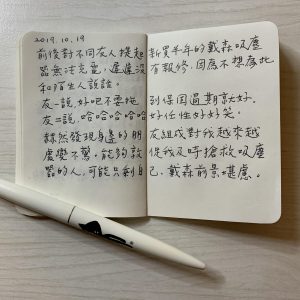 2019.10.19
前後對不同友人提起新買半年的戴森吸塵
器無法充電，遲遲沒有報修，因為不想為此
和陌生人說話。
友一說，好吧不要拖到保固過期就好。
友二說，哈哈哈哈哈好任性好好笑。
赫然發現身邊的朋友組成對我越來越
處變不驚，能夠敦促我及時搶救吸塵
器的人，可能只剩自己，戴森前景堪慮。